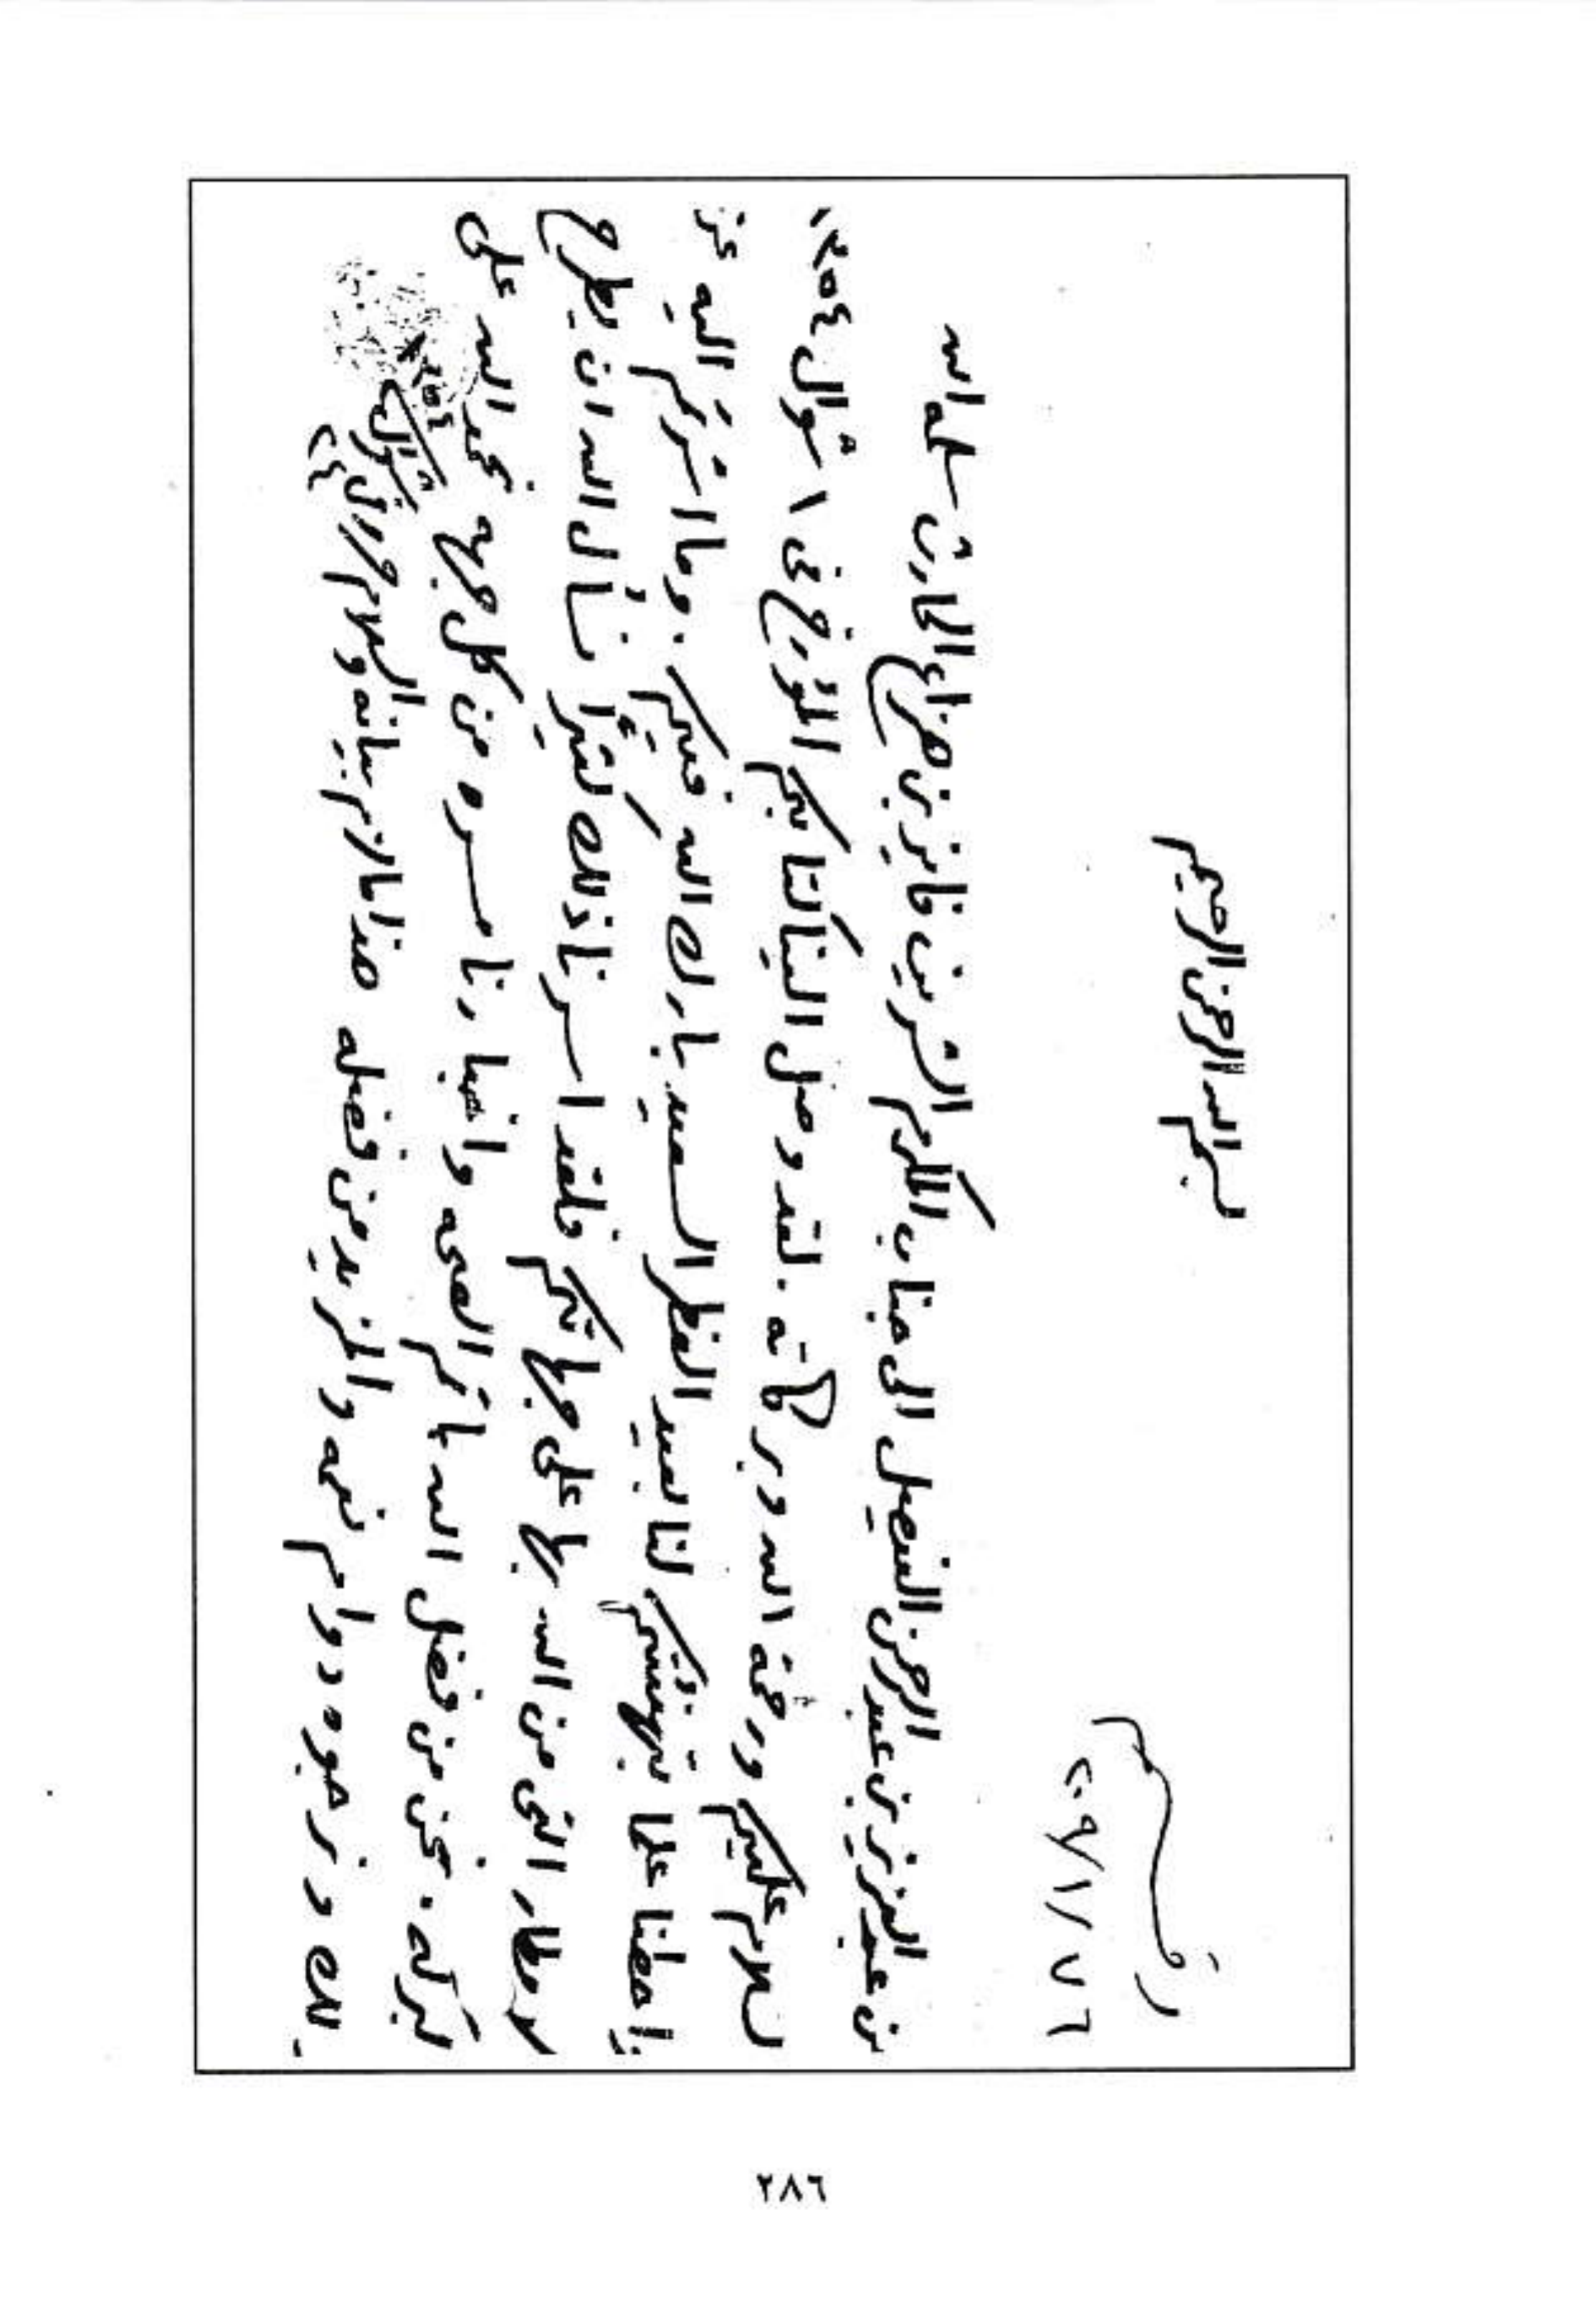 بسم الله الرحمن الرحيم
رقم
٢٠٩/١/٧٦
من عبد العزيز بن عبد الرحمن الفيصل الى جناب المكرم الشريف فايز بن هزاع الحارث سلمه الله
السلام عليكم ورحمة الله وبركاته . لقد وصل الينا كتابكم المؤرخ في ١ شوال ١٣٥٤
واحطنا علما بتهنئتكم لنا بعيد الفطر السعيد بارك الله فيكم . وما اشرتم اليه عن
الامطار التي من الله بها على جهاتكم فلقد اسرنا ذلك كثيرا نسأل الله ان يطرح
البركه . نحن من فضل الله باتم الصحه واخبارنا مسره من كل جهه نحمد الله على
ذلك ونرجوه دوام نعمه والمزيد من فضله هذا مالزم بيانه والسلام حرر في
٢٤ شوال ١٣٥٤
٢٨٦